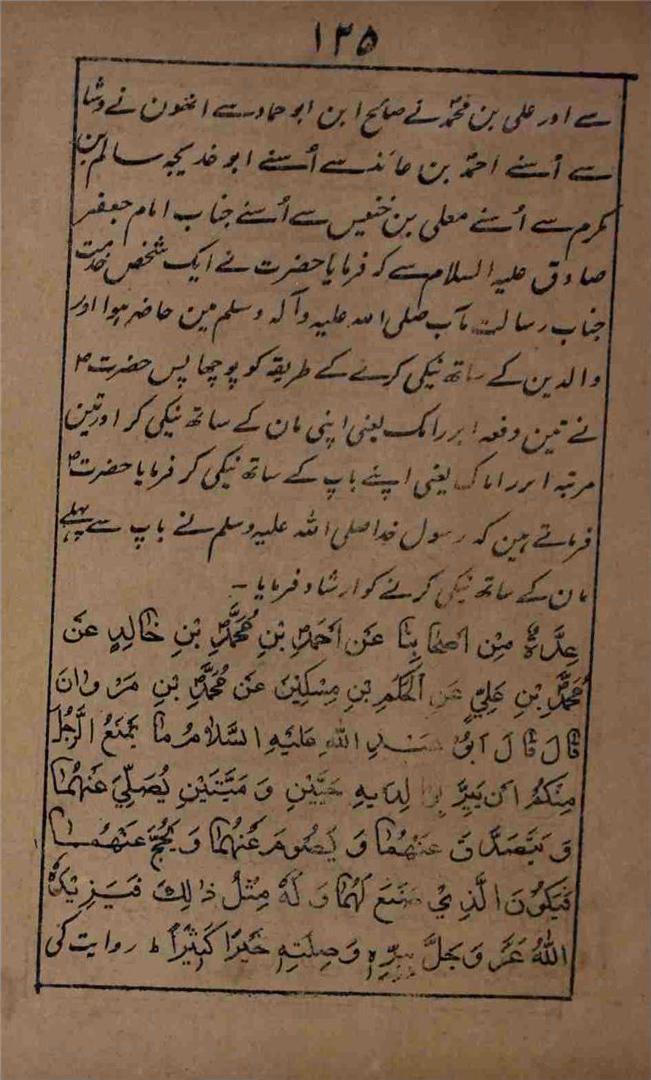 ۱۲۵
سے اور علی بن محمدؐ نے صالح ابن ابو حماد سے انھون نے وشا
سے اُسنے احمدؐ بن عائذ سے اُسنے ابو خدیجہ سالم بن
مکرم سے اُسنے معلی بن خنیس سے اُسنے جناب امام جعفر
صادق علیہ السلام سے کہ فرمایا حضرت نے ایک شخص خدمت
جناب رسالت مآب صلی اللہ علیہ وآلہ وسلم مین حاضر ہوا اور
والدین کے ساتھ نیکی کرنے کے طریقہ کو پوچھا پس حضرت ؐ
نے تین دفعہ ابرر امک یعنی اپنی مان کے ساتھ نیکی کر اور تین
مرتبہ ابرر اباک یعنی اپنے باپ کے ساتھ نیکی کر فرمایا حضرت ؐ
فرماتے ہین کہ رسول خدا صلی اللہ علیہ وسلم نے باپ سے پہلے
مان کے ساتھ نیکی کرنے کو ارشاد فرمایا -
عِدَّةٌ مِنْ اَصْحَابِنَا عَن اَحْمَدَ بْنِ مُحَمَّدِ بْنِ خَالِدٍ عَن
مُحَمَّدِ بْنِ عَلِيٍّ عَنِ الْحَكَمِ بْنِ مِسْكِيْنَ عَن مُحَمَّدِ بْنِ مَرْوَانَ
قَالَ قَالَ اَبُو عَبْدِ اللّٰهِ عَلَيْهِ السَّلَامُ مَا يَمْنَعُ الرَّجُلَ
مِنْكُمْ اَنْ يَبَرَّ وَالِدَيْهِ حَيَّيْنِ وَ مَيِّتَيْنِ يُصَلِّيَ عَنْهُمَا
وَ يَتَصَدَّقَ عَنْهُمَا وَ يَصُومَ عَنْهُمَا وَ يَحُجَّ عَنْهُمَا
فَيَكُوْنَ الَّذِيْ صَنَعَ لَهُمَا وَ لَهُ مِثْلُ ذٰلِكَ فَيَزِيْدَهُ
اللّٰهُ عَزَّ وَجَلَّ بِبِرِّهٖ وَصِلَتِهٖ خَيْرًا كَثِيْرًا ط روایت کی